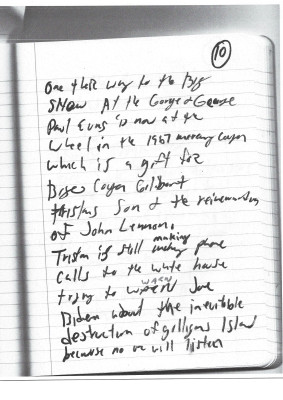 10
one their way to the Big
Show At the George & George
Paul Evins is now at the
wheel in the 1967 mercury Cougar
which is a gift for
Tristins Son & the reincarnation
OF John Lennon.
Tristin is still making phone
calls to the white house
trying to warn Joe
Biden about the inevitible
destruction of gilligans Island
because no one will listen